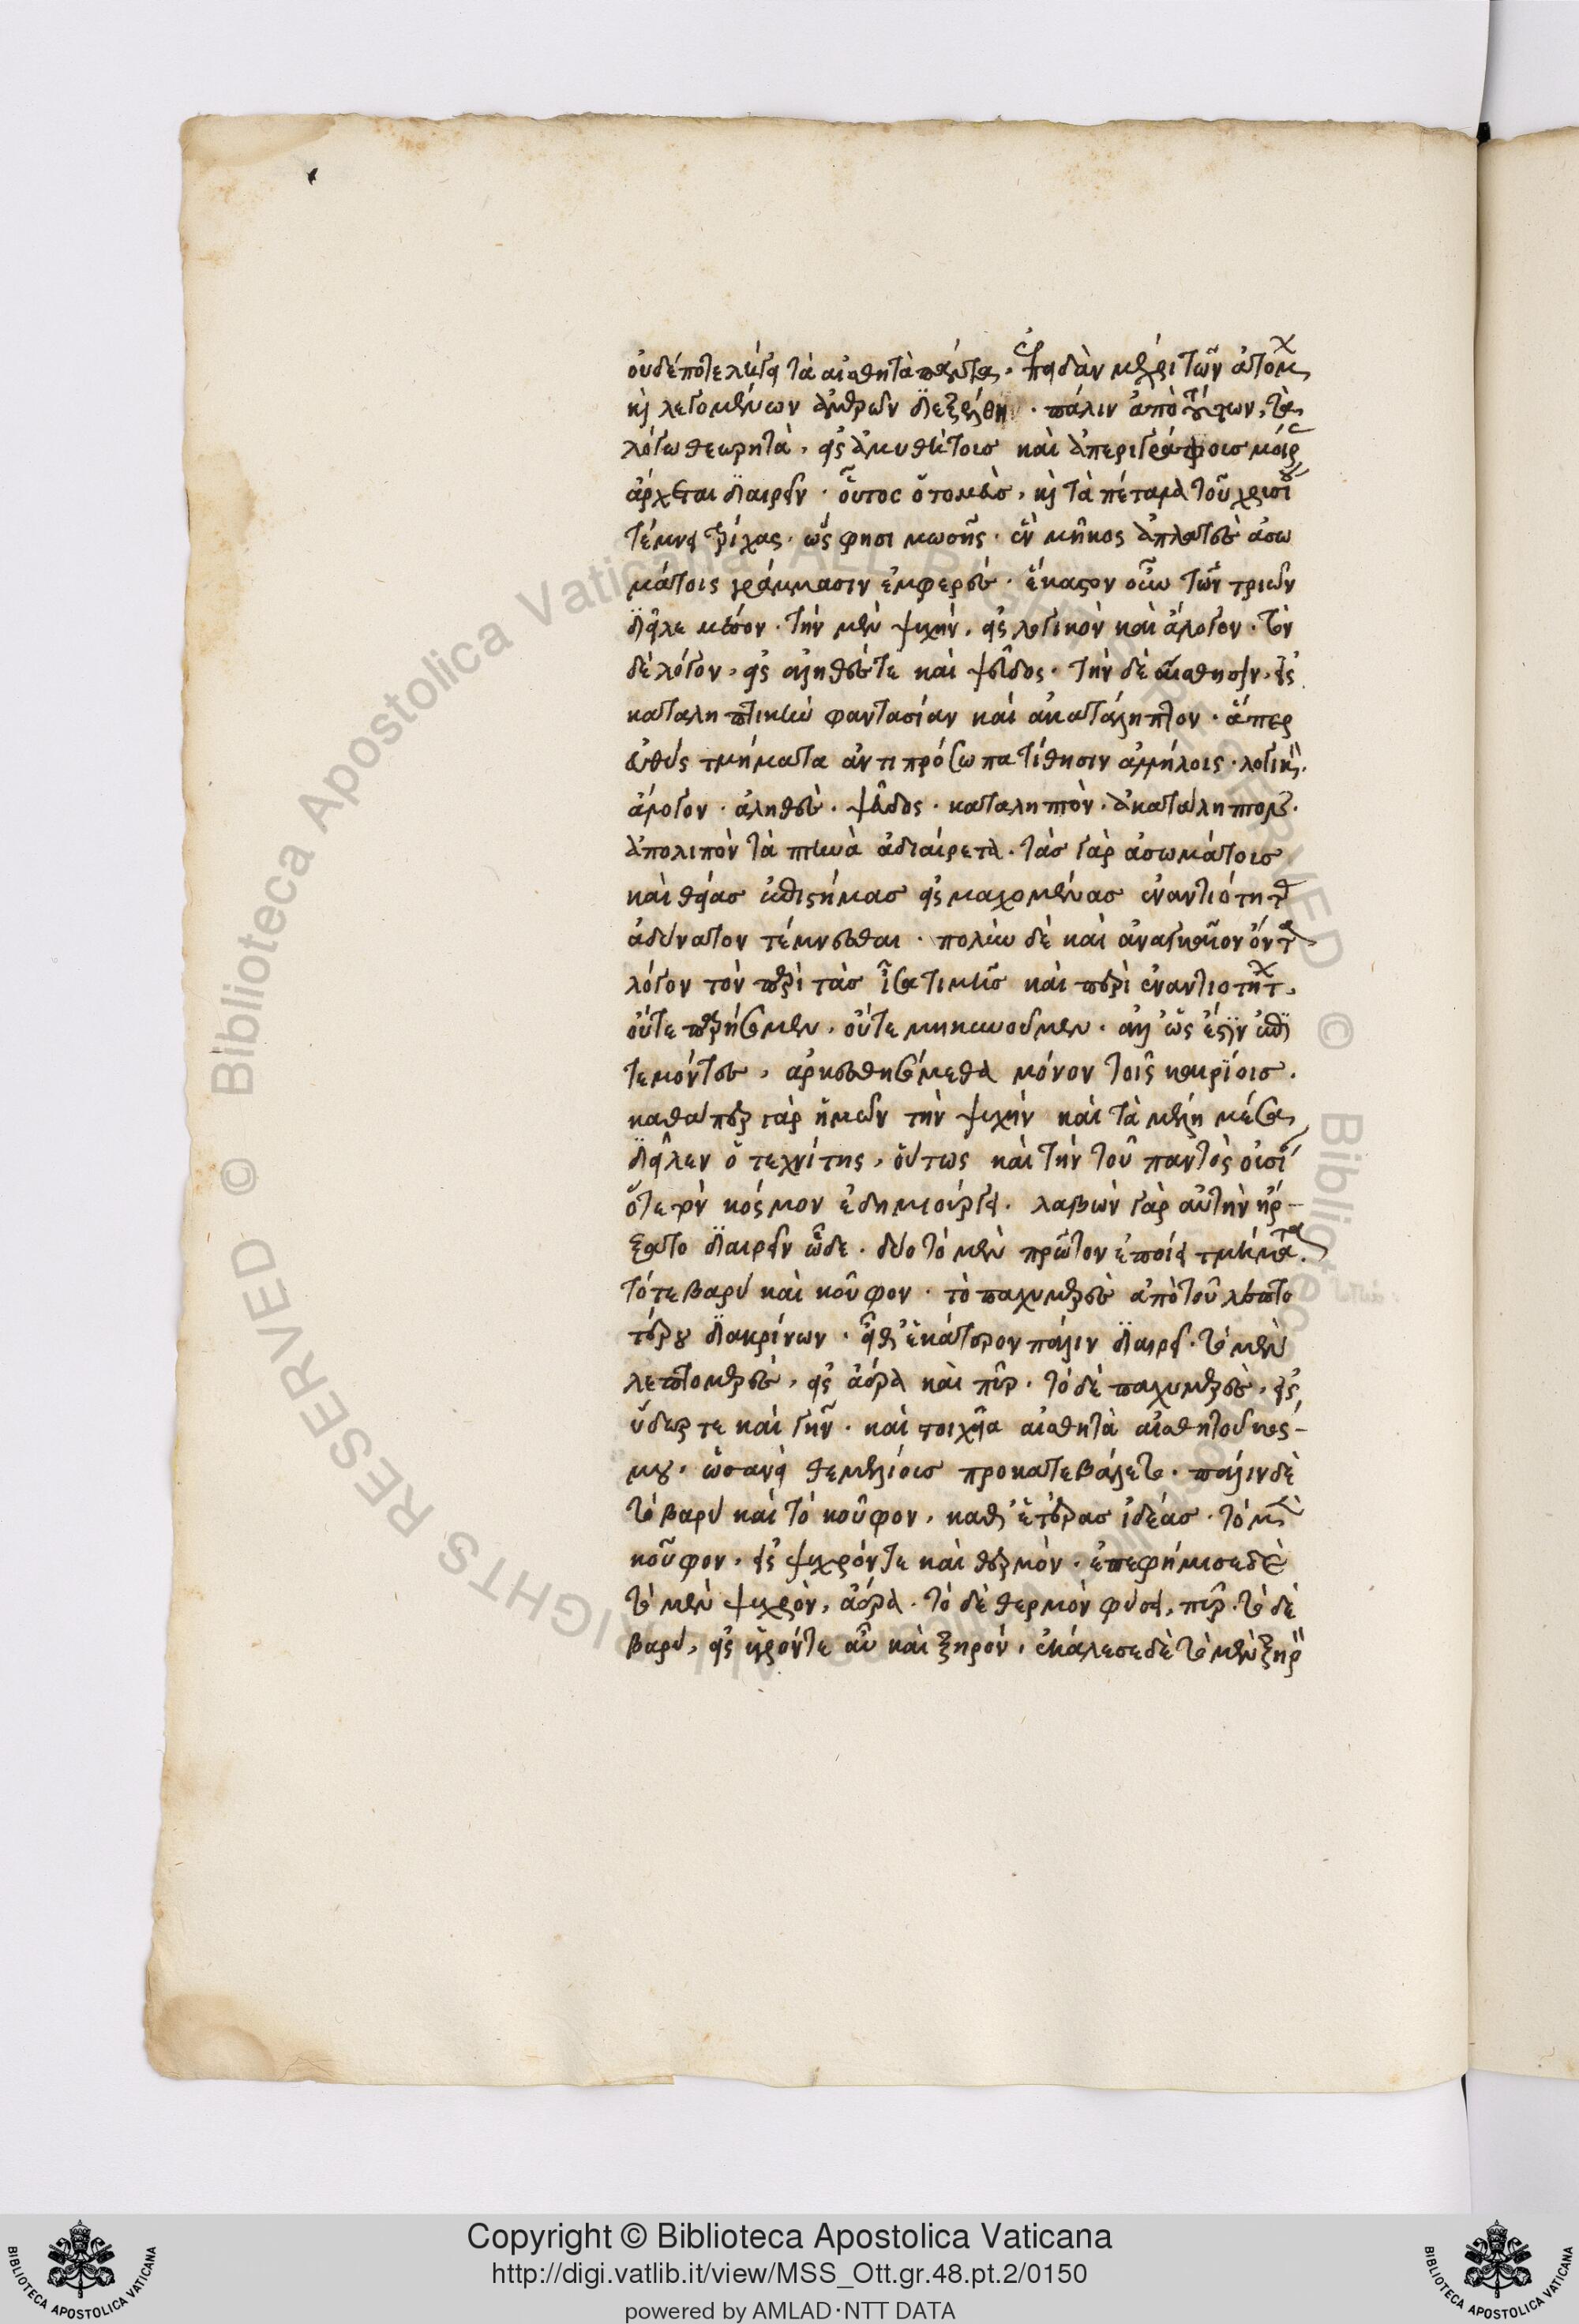 οὐδέποτε λήγει τὰ αἰσθητὰ πάντα. ἐπειδὰν μέχρι τῶν ἀτόμων
καὶ λεγομένων ἀμερῶν διεξέλθῃ. πάλιν ἀπὸ τούτων, τὰ
λόγῳ θεωρητὰ, εἰς ἀμυθήτοις καὶ ἀπεριγράφοις μοίρας
ἄρχεται διαιρεῖν. οὗτος ὁ τομεὺς, καὶ τὰ πέταλα τοῦ χρυσίου
τέμνει τρίχας. ὥς φησι μωσῆς. ἓν μῆκος ἀπλατὲς ἀσω
μάτοις γράμμασιν ἐμφερές. ἕκαστον οὖν τῶν τριῶν
διεῖλε μέσον. τὴν μὲν ψυχὴν, εἰς λογικὸν καὶ ἄλογον. τὸν
δὲ λόγον, εἰς ἀληθές τε καὶ ψεῦδος. τὴν δὲ αἴσθησιν, εἰς
καταληπτικὴν φαντασίαν καὶ ἀκατάληπτον. ἅπερ
εὐθὺς τμήματα ἀντιπρόσωπα τίθησιν ἀλλήλοις. λογικὸν.
ἄλογον. ἀληθὲς. ψεῦδος. καταληπτὸν. ἀκατάληπτον.
ἀπολιπὸν τὰ πτηνὰ ἀδιαίρετα. τὰς γὰρ ἀσωμάτοις
καὶ θείας ἐπιστήμας εἰς μαχομένας ἐναντιότητας
ἀδύνατον τέμνεσθαι. πολὺν δὲ καὶ ἀναγκαῖον ὄντα
λόγον τὸν περὶ τὰς ἴσα τιμῆς καὶ περὶ ἐναντιοτήτων,
οὔτε παρήσομεν, οὔτε μηκυνοῦμεν. ἀλλ' ὡς ἔστιν ἐπι
τεμόντες, ἀρκεσθησόμεθα μόνον τοῖς καιρίοις.
καθάπερ γὰρ ἡμῶν τὴν ψυχὴν καὶ τὰ μέλη μέσα
διεῖλεν ὁ τεχνίτης, οὕτως καὶ τὴν τοῦ παντὸς οὐσίαν
ὅτε τὸν κόσμον ἐδημιούργει. λαβὼν γὰρ αὐτὴν ἤρ-
ξατο διαιρεῖν ὧδε. δύο τὸ μὲν πρῶτον ἐποίει τμήματα.
τό τε βαρὺ καὶ κοῦφον. τὸ παχυμερὲς ἀπὸ τοῦ λεπτο
τέρου διακρίνων. εἶθ' ἑκάτερον πάλιν διαιρεῖ. τὸ μὲν
λεπτομερὲς, εἰς ἀέρα καὶ πῦρ. τὸ δὲ παχυμερὲς, εἰς
ὕδωρ τε καὶ γῆν. καὶ στοιχεῖα αἰσθητὰ αἰσθητοῦ κόσ-
μου. ὡσανεὶ θεμελίοις προκατεβάλετο. πάλιν δὲ
τὸ βαρὺ καὶ τὸ κοῦφον, καθ' ἑτέρας ἰδέας. τὸ μὲν
κοῦφον, εἰς ψυχρόν τε καὶ θερμὸν. ἐπεφήμισε δὲ
τὸ μὲν ψυχρὸν, ἀέρα. τὸ δὲ θερμὸν φύσει, πῦρ. τὸ δὲ
βαρὺ, εἰς ὑγρόν τε αὖ καὶ ξηρόν. ἐκάλεσε δὲ τὸ μὲν ξηρὸν
Copyright © Biblioteca Apostolica Vaticana
http://digi.vatlib.it/view/MSS_Ott.gr.48.pt.2/0150
powered by AMLAD·NTT DATA